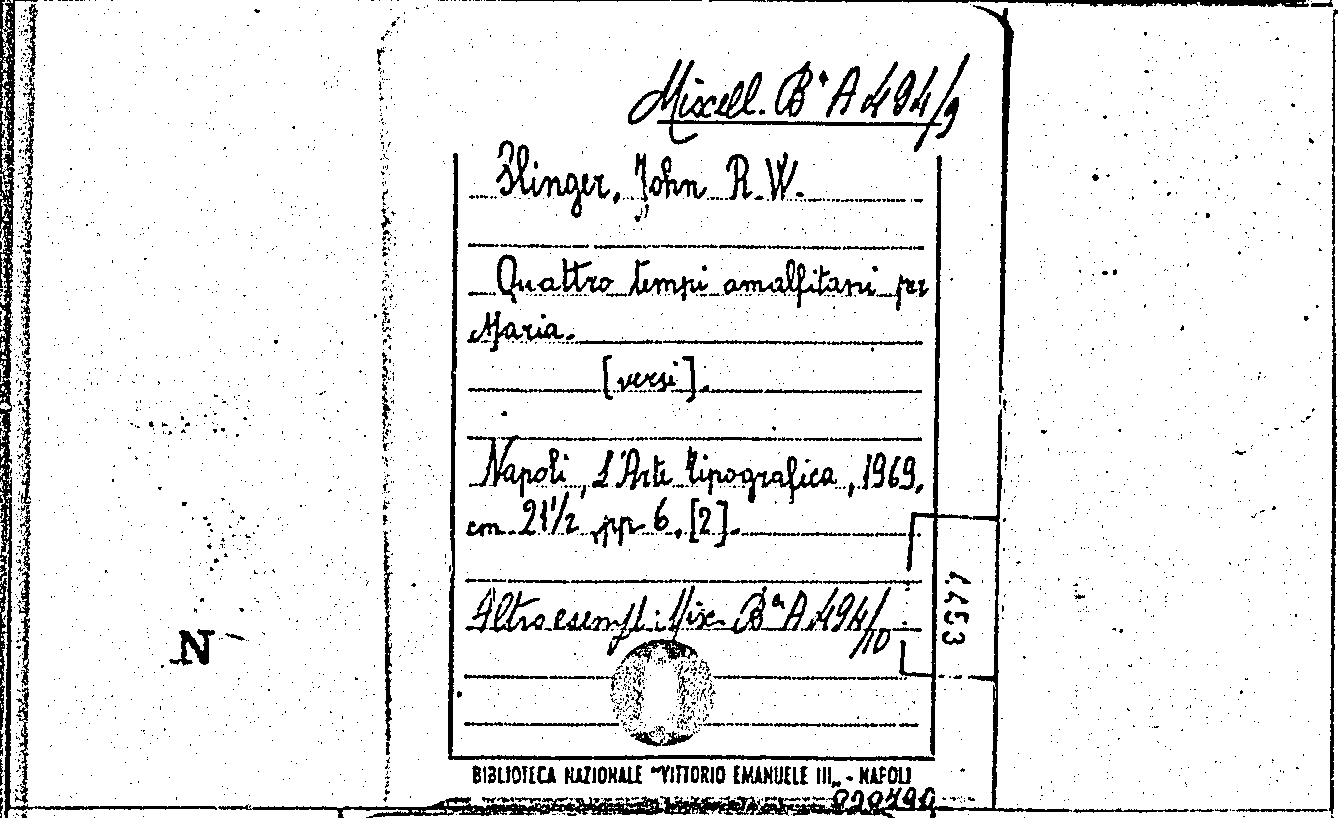 Miscell. Bª A 494/9
Slinger, John R. W.
Quattro tempi amalfitani per
Maria.
[versi].
Napoli, L'Arte tipografica, 1969.
cm. 21½ pp. 6, [2].
Altro esempl: Misc. Bª A 494/10
N
1453
BIBLIOTECA NAZIONALE "VITTORIO EMANUELE III„ - NAPOLI